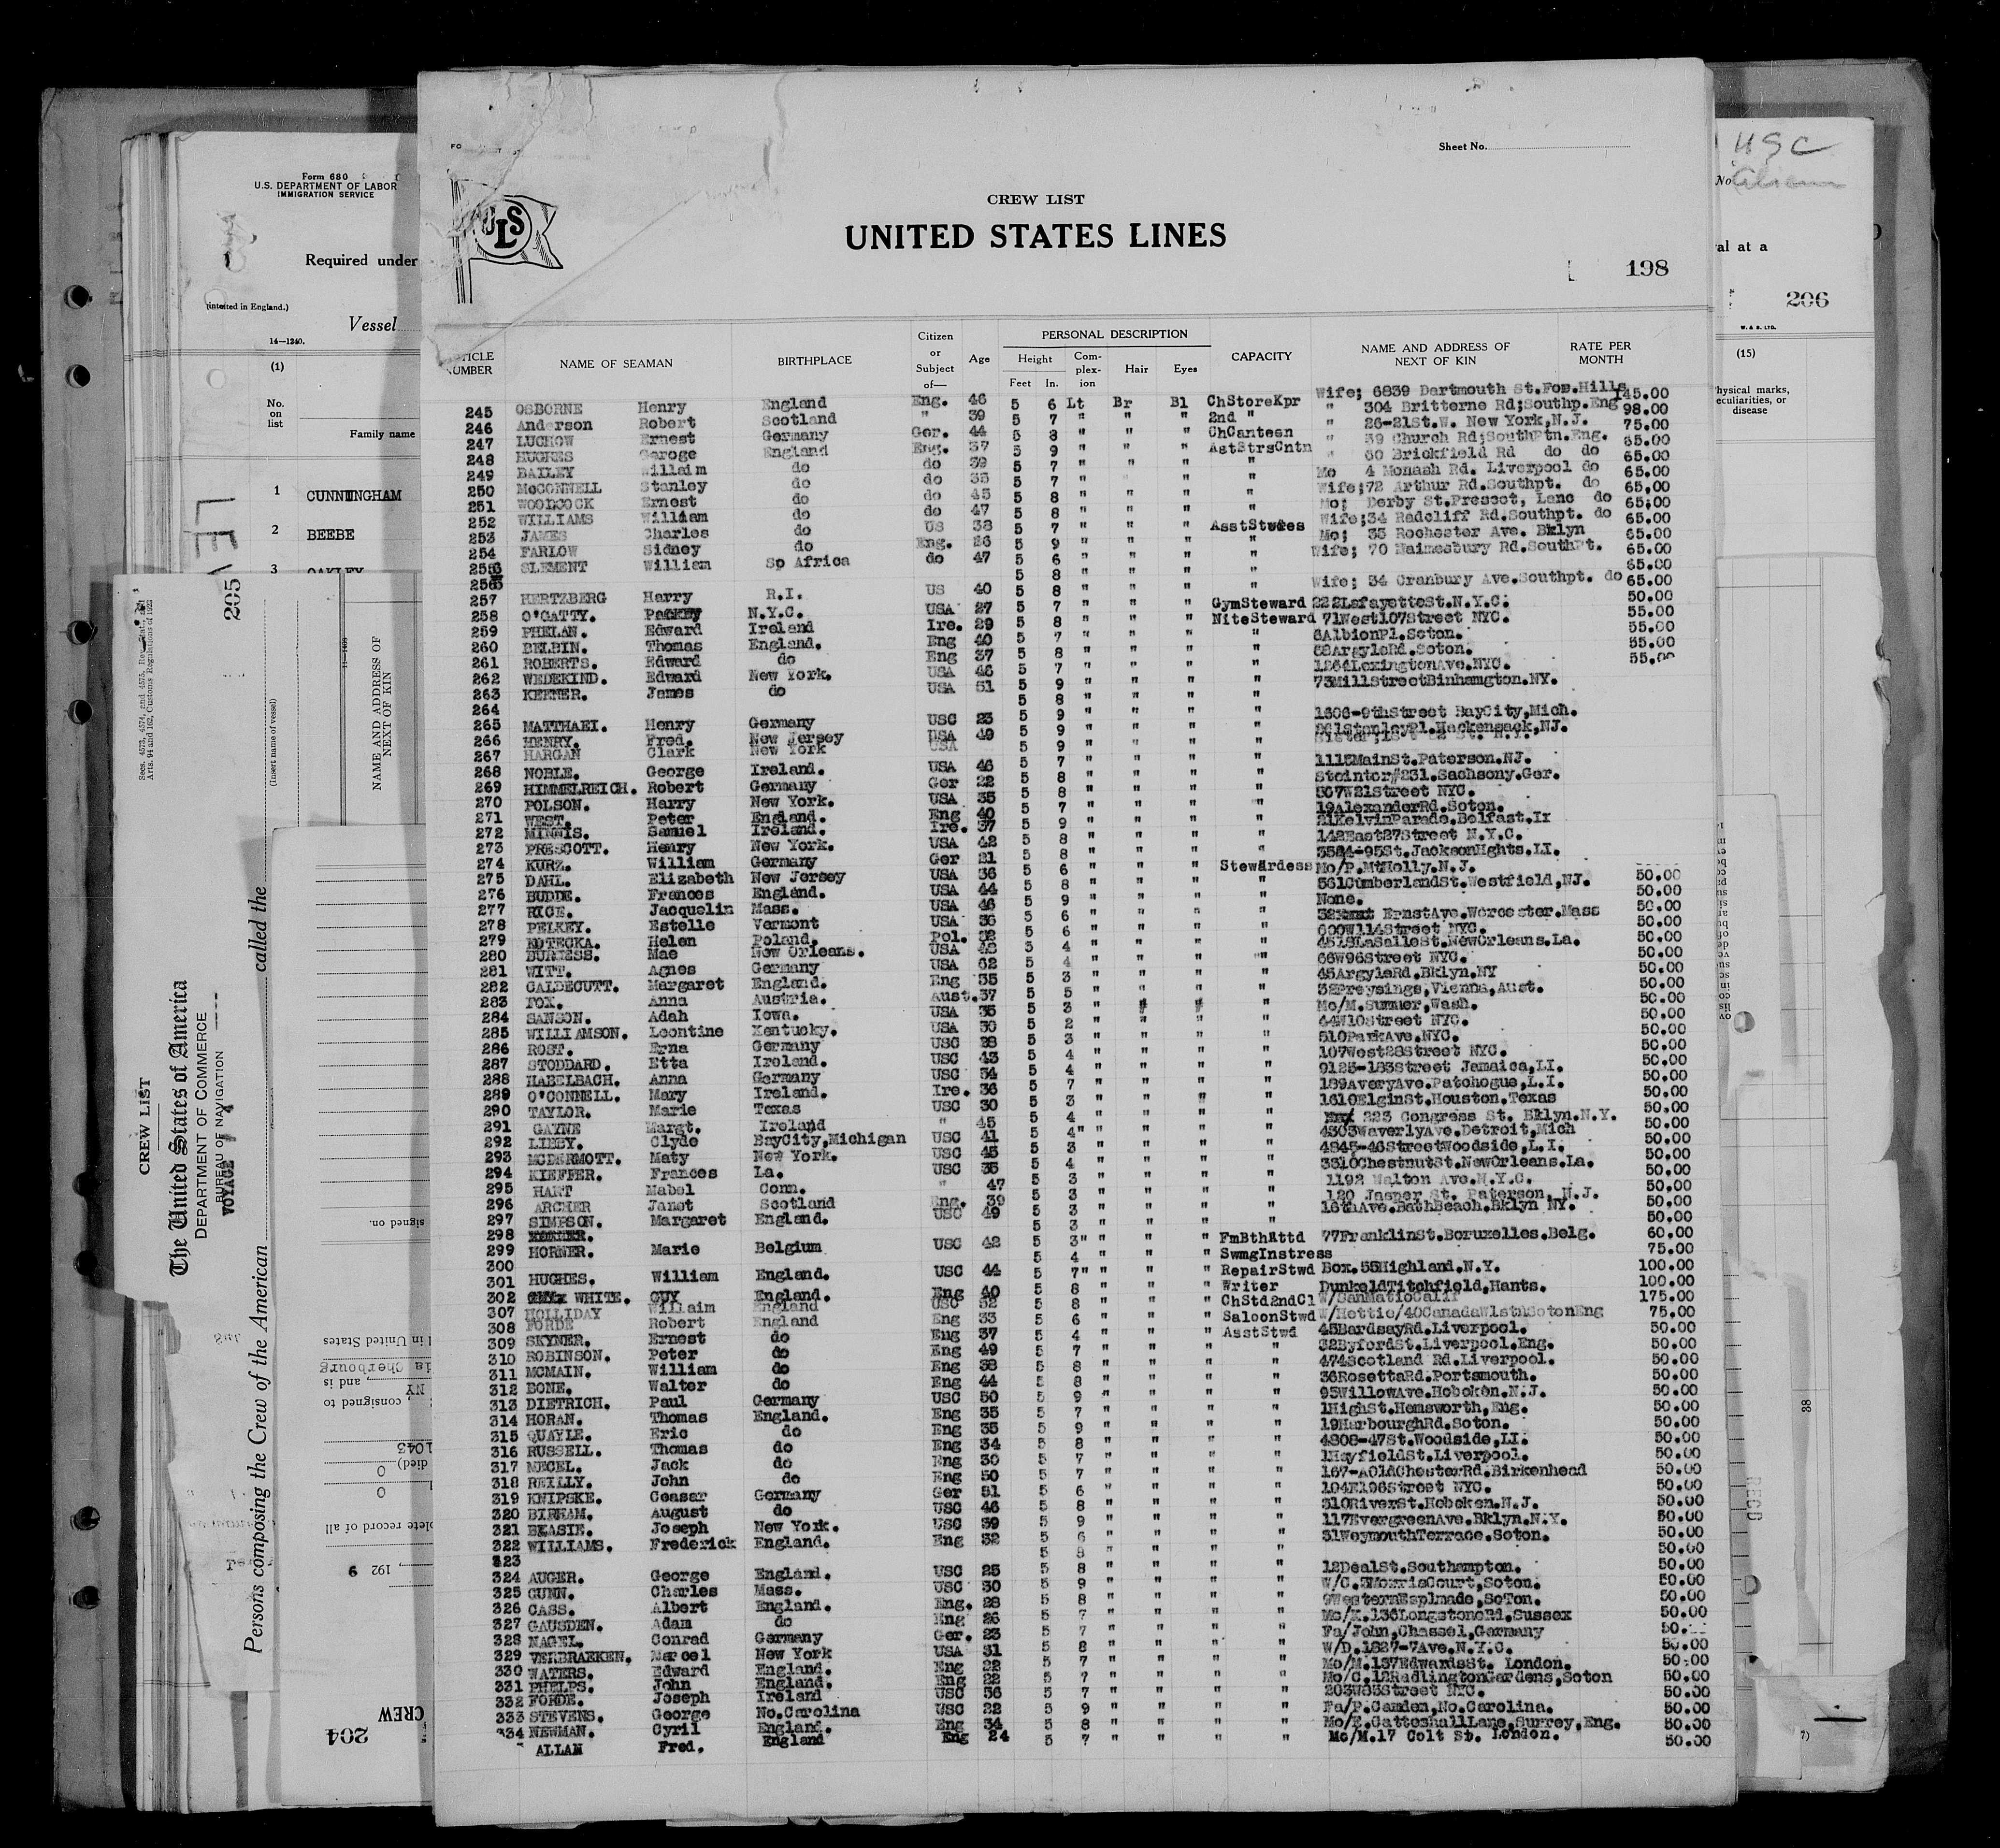 Form 680
U.S. DEPARTMENT OF LABOR
IMMIGRATION SERVICE
Required under
Vessel
14—1240.
(1)
No. on list
Family name
1 CUNNINGHAM
2 BEEBE
3 OAKLEY
205
NAME AND ADDRESS OF NEXT OF KIN
(Insert name of vessel)
CREW LIST
The United States of America
DEPARTMENT OF COMMERCE
BUREAU OF NAVIGATION
VOYAGE
Persons composing the Crew of the American called the
204
CREW
Sheet No.
ULS
CREW LIST
UNITED STATES LINES
198
NUMBER
NAME OF SEAMAN
BIRTHPLACE
Citizen or Subject of—
Age
PERSONAL DESCRIPTION
Height
Feet In.
Complexion
Hair
Eyes
CAPACITY
NAME AND ADDRESS OF NEXT OF KIN
RATE PER MONTH
245 OSBORNE Henry England Eng. 46 5 6 Lt Br Bl ChStoreKpr Wife; 6839 Dartmouth St. Hills 145.00
246 Anderson Robert Scotland " 39 5 7 " " " 2nd " " 304 Britterne Rd;Southp.Eng 98.00
247 LUCHOW Ernest Germany Ger. 44 5 8 " " " ChCanteen " 26-21St.W. New York,N.J. 75.00
248 HUGHES Geroge England Eng. 37 5 9 " " " AstStrsCntn " 39 Church Rd;SouthPtn.Eng. 65.00
249 BAILEY Willaim do do 39 5 7 " " " " " 60 Brickfield Rd do do 65.00
250 McCONNELL Stanley do do 35 5 7 " " " " Mo 4 Monash Rd. Liverpool do 65.00
251 WOOLCOCK Ernest do do 45 5 8 " " " " Wife;72 Arthur Rd.Southpt. do 65.00
252 WILLIAMS William do do 47 5 8 " " " " Mo; Derby St.Prescot, Lanc do 65.00
253 JAMES Charles do US 38 5 7 " " " AsstStwres Wife;34 Radcliff Rd.Southpt. do 65.00
254 FARLOW Sidney do Eng. 26 5 9 " " " " Mo; 35 Rochester Ave. Bklyn 65.00
255 CLEMENT William So Africa do 47 5 6 " " " " Wife; 70 Naimesbury Rd.SouthPt. 65.00
256 5 8 " " " " Wife; 34 Cranbury Ave.Southpt. do 65.00
257 HERTZBERG Harry R.I. US 40 5 8 " " " GymSteward 222LafayetteSt.N.Y.C. 50.00
258 O'GATTY. PACKEY N.Y.C. USA 27 5 7 " " " NiteSteward 71West107Street NYC. 55.00
259 PHELAN. Edward Ireland Ire. 29 5 8 " " " " 8AlbionPl.Soton. 55.00
260 BELBIN. Thomas England. Eng 40 5 7 " " " " 68ArgyleRd.Soton. 55.00
261 ROBERTS. Edward do Eng 37 5 8 " " " " 1264LexingtonAve.NYC. 55.00
262 WEDEKIND. Edward New York. USA 46 5 7 " " " " 73MillStreetBinhamgton.NY.
263 KEENER. James do USA 51 5 9 " " " "
264 5 8 " " " " 1606-9thStreet BayCity,Mich.
265 MATTHAEI. Henry Germany USC 23 5 9 " " " " 261StanleyPl.Hackensack,NJ.
266 HENRY. Fred. New Jersey USA 49 5 9 " " " "
267 HARGAN Clark New York USA 5 9 " " " "
268 NOBLE. George Ireland. USA 46 5 7 " " " " 1115MainSt.Paterson.NJ.
269 HIMMELREICH. Robert Germany Ger 22 5 8 " " " " Steintor#231.Sachsony.Ger.
270 POLSON. Harry New York. USA 35 5 8 " " " " 507W21Street NYC.
271 WEST. Peter England. Eng 40 5 7 " " " " 19AlexanderRd.Soton.
272 MINNIS. Samuel Ireland. Ire. 37 5 9 " " " " 21KelvinParade.Belfast.Ir
273 PRESCOTT. Henry New York. USA 42 5 8 " " " " 142East27Street N.Y.C.
274 KURZ. William Germany Ger 21 5 8 " " " " 3584-95St.JacksonHghts.LI.
275 DAHL. Elizabeth New Jersey USA 36 5 6 " " " Stewardess Mo/P.MtHolly.N.J. 50.00
276 BUDDE. Frances England. USA 44 5 8 " " " " 561CumberlandSt.Westfield,NJ. 50.00
277 RICE. Jacquelin Mass. USA 46 5 9 " " " " None. 50.00
278 PELKEY. Estelle Vermont USA 36 5 6 " " " " ErnstAve.Worcester.Mass 50.00
279 KOTECKA. Helen Poland. Pol. 32 5 6 " " " " 600W114Street NYC. 50.00
280 BURGESS. Mae New Orleans. USA 42 5 4 " " " " 4519LaSalleSt.NewOrleans.La. 50.00
281 WITT. Agnes Germany USA 62 5 4 " " " " 66W96Street NYC. 50.00
282 CALDECUTT. Margaret England. Eng 35 5 3 " " " " 45ArgyleRd.Bklyn.NY 50.00
283 FOX. Anna Austria. Aust.37 5 5 " " " " 32Preysings,Vienna,Aust. 50.00
284 SANSON. Adah Iowa. USA 35 5 3 " " " " Mo/M.Sumner,Wash. 50.00
285 WILLIAMSON. Leontine Kentucky. USA 30 5 2 " " " " 44W10Street NYC. 50.00
286 ROST. Erna Germany USC 28 5 3 " " " " 510ParkAve.NYC. 50.00
287 STODDARD. Etta Ireland. USC 43 5 4 " " " " 107West28Street NYC. 50.00
288 HABELBACH. Anna Germany USC 34 5 4 " " " " 9125-183Street Jamaica,LI. 50.00
289 O'CONNELL. Mary Ireland. Ire. 36 5 7 " " " " 189AveryAve.Patchogue,L.I. 50.00
290 TAYLOR. Marie Texas USC 30 5 3 " " " " 1610ElginSt.Houston,Texas 50.00
291 GAYNE Margt. Ireland " 45 5 4 " " " " 223 Congress St. Bklyn.N.Y. 50.00
292 LIBBY. Clyde BayCity,Michigan USC 41 5 4" " " " " 4303WaverlyAve.Detroit,Mich 50.00
293 MCDERMOTT. Maty New York. USC 45 5 3 " " " " 4845-46StreetWoodside,L.I. 50.00
294 KIEFFER. Frances La. USC 35 5 4 " " " " 3310ChestnutSt.NewOrleans.La. 50.00
295 HART Mabel Conn. " 47 5 3 " " " " 1192 Walton Ave.N.Y.C. 50.00
296 ARCHER Janet Scotland Eng. 39 5 3 " " " " 120 Jasper St. Paterson, N.J. 50.00
297 SIMPSON. Margaret England. USC 49 5 3 " " " " 16thAve.BathBeach.Bklyn NY. 50.00
298 5 3 " " " " 50.00
299 HORNER. Marie Belgium USC 42 5 3" " " " FmBthAttd 77FranklinSt.Boruxelles.Belg. 60.00
300 5 4 " " " SwmgInstress 75.00
301 HUGHES. William England. USC 44 5 7" " " " RepairStwd Box.55Highland.N.Y. 100.00
302 WHITE. GUY England. Eng 40 5 8 " " " Writer DunkeldTitchfield,Hants. 100.00
307 HOLLIDAY Willaim England USC 52 5 8 " " " ChStd2ndCl W/SanMatioCalif 175.00
308 FORDE Robert England Eng 33 5 6 " " " SaloonStwd W/Hettie/40CanadaWlstnSotonEng 75.00
309 SKYNER. Ernest do Eng 37 5 4 " " " AsstStwd 45BardsayRd.Liverpool. 50.00
310 ROBINSON. Peter do Eng 49 5 7 " " " " 32ByfordSt.Liverpool.Eng. 50.00
311 MCMAIN. William do Eng 38 5 8 " " " " 474Scotland Rd.Liverpool. 50.00
312 BONE. Walter do Eng 44 5 8 " " " " 36RosettaRd.Portsmouth. 50.00
313 DIETRICH. Paul Germany USC 50 5 9 " " " " 95WillowAve.Hoboken.N.J. 50.00
314 HORAN. Thomas England. Eng 35 5 7 " " " " 1HighSt.Hemsworth,Eng. 50.00
315 QUAYLE. Eric do Eng 35 5 9 " " " " 19HarbourghRd.Soton. 50.00
316 RUSSELL. Thomas do Eng 34 5 8 " " " " 4808-47St.Woodside,LI. 50.00
317 MECEL. Jack do Eng 30 5 7 " " " " 1HayfieldSt.Liverpool. 50.00
318 REILLY. John do Eng 50 5 7 " " " " 167-A01dChesterRd.Birkenhead 50.00
319 KNIPSKE. Ceasar Germany Ger 51 5 6 " " " " 104E196Street NYC. 50.00
320 BIRHAM. August do USC 46 5 8 " " " " 310RiverSt.Hoboken.N.J. 50.00
321 BEASIE. Joseph New York. USC 39 5 9 " " " " 117EvergreenAve.Bklyn.N.Y. 50.00
322 WILLIAMS. Frederick England. Eng 32 5 6 " " " " 31WeymouthTerrace.Soton. 50.00
323 5 8 " " " " 50.00
324 AUGER. George England. USC 25 5 8 " " " " 12DealSt.Southampton. 50.00
325 GUNN. Charles Mass. USC 30 5 9 " " " " W/C.3MorrisCourt,Soton. 50.00
326 CASS. Albert England. Eng. 28 5 8 " " " " 9WesternEsplnade,SoTon. 50.00
327 GAUSDEN. Adam do Eng 26 5 7 " " " " Mo/K.136LongstoneRd.Sussex 50.00
328 NAGEL. Conrad Germany Ger. 23 5 7 " " " " Fa/John,Chassel,Germany 50.
329 VERBRAEKEN. Marcel New York USA 31 5 8 " " " " W/D.1827-7Ave.N.Y.C. 50.00
330 WATERS. Edward England. Eng 22 5 7 " " " " Mo/M.137EdwardsSt. London. 50.00
331 PHELPS. John England. Eng 22 5 7 " " " " Mo/C.12RadlingtonGardens,Soton 50.00
332 FORDE. Joseph Ireland USC 36 5 7 " " " " 203W83Street NYC. 50.00
333 STEVENS. George No.Carolina USC 22 5 9 " " " " Fa/P.Camden,No.Carolina. 50.00
334 NEWMAN. Cyril England. Eng 34 5 8 " " " " Mo/E.GatteshallLane,Surrey,Eng. 50.00
ALLAN Fred. England Eng 24 5 7 " " " " Mo/M.17 Colt St. London. 50.00
USC
No
val at a
206
W. & S. LTD.
(15)
Physical marks, peculiarities, or disease
38